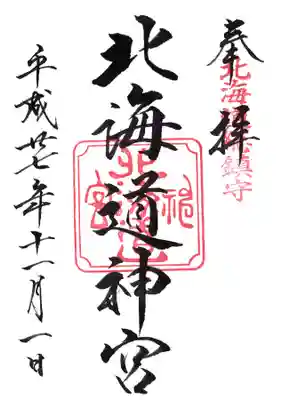 奉拝
北海道総鎮守
北海道神宮
平成廿七年十一月一日